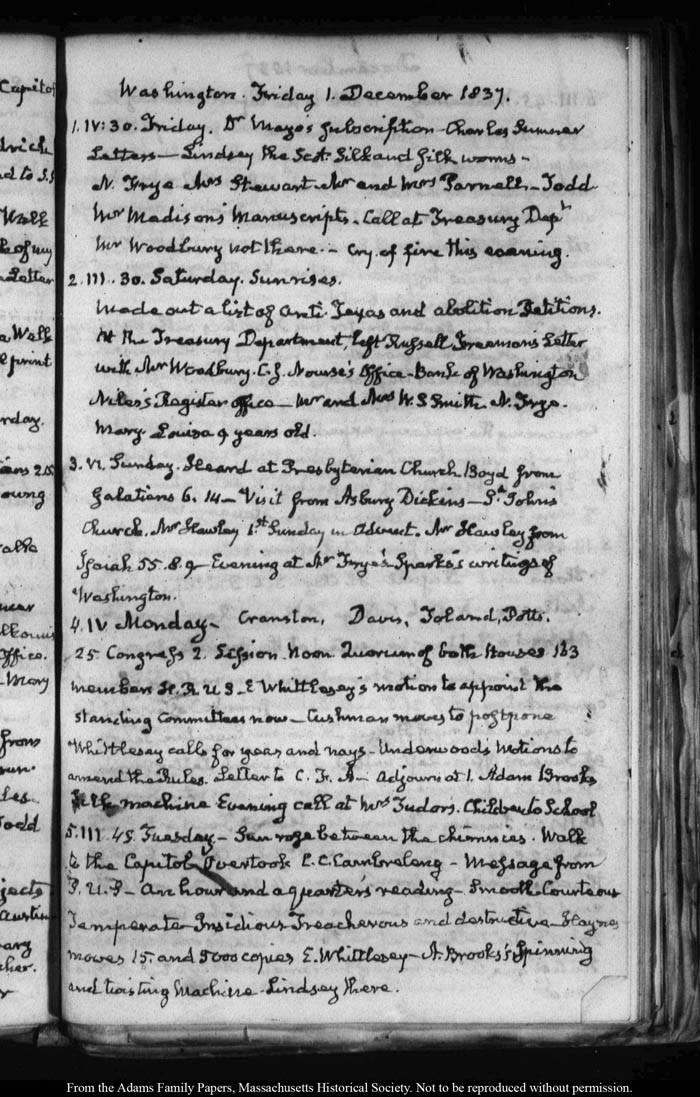 Washington. Friday 1. December 1837.
1. IV: 30. Friday. Dr Mayo's subscription - Charles Sumner
Letters - Lindsay the Scot. Silk and Silk worms -
N. Frye Mrs Stewart. Mr and Mrs Parnell - Todd
Mr Madison's Manuscripts. Call at Treasury Dept
Mr Woodbury not there. - Cry of fire this evening.
2. III. 30. Saturday. Sunrises.
Made out a list of anti-Texas and abolition Petitions.
At the Treasury Department, left Russell Freeman's Letter
with Mr Woodbury. C. J. Nourse's Office - Bank of Washington
Niles's Register office - Mr and Mrs W. S Smith. N. Frye.
Mary Louisa 9 years old.
3. VI. Sunday. Heard at Presbyterian Church Boyd from
Galatians 6. 14 - Visit from Asbury Dickens - St John's
Church. Mr Hawley 1st Sunday in Advent. Mr Hawley from
Isaiah 55. 8. 9 - Evening at Mr Frye's Sparks's writings of
Washington.
4. IV Monday - Cranston, Davis, Toland, Potts.
25 Congress 2. Session. Noon. Quorum of both Houses 163
members H. R U S - E Whittlesey's motion to appoint the
standing Committees now - Cushman moves to postpone
Whittlesey calls for yeas and nays - Underwood's Motions to
amend the Rules. Letter to C. F. A - Adjourn at 1. Adam Brooks
Silk machine Evening call at Mrs Tudor's. Children to School
5. III. 45. Tuesday - Sun rose between the chimnies. Walk
to the Capitol. Overtook C. C. Cambreleng - Message from
P. U. S - An hour and a quarter's reading - Smooth Courteous
Temperate Insidious Treacherous and destructive - Haynes
moves 15. and 5000 copies E. Whittlesey - A. Brooks's Spinning
and twisting Machine - Lindsay there.
Capitol
and to
Walk
of my
Letter
a Walk
print
young
walk
near
Office.
Mary
from
Todd
Austin
From the Adams Family Papers, Massachusetts Historical Society. Not to be reproduced without permission.